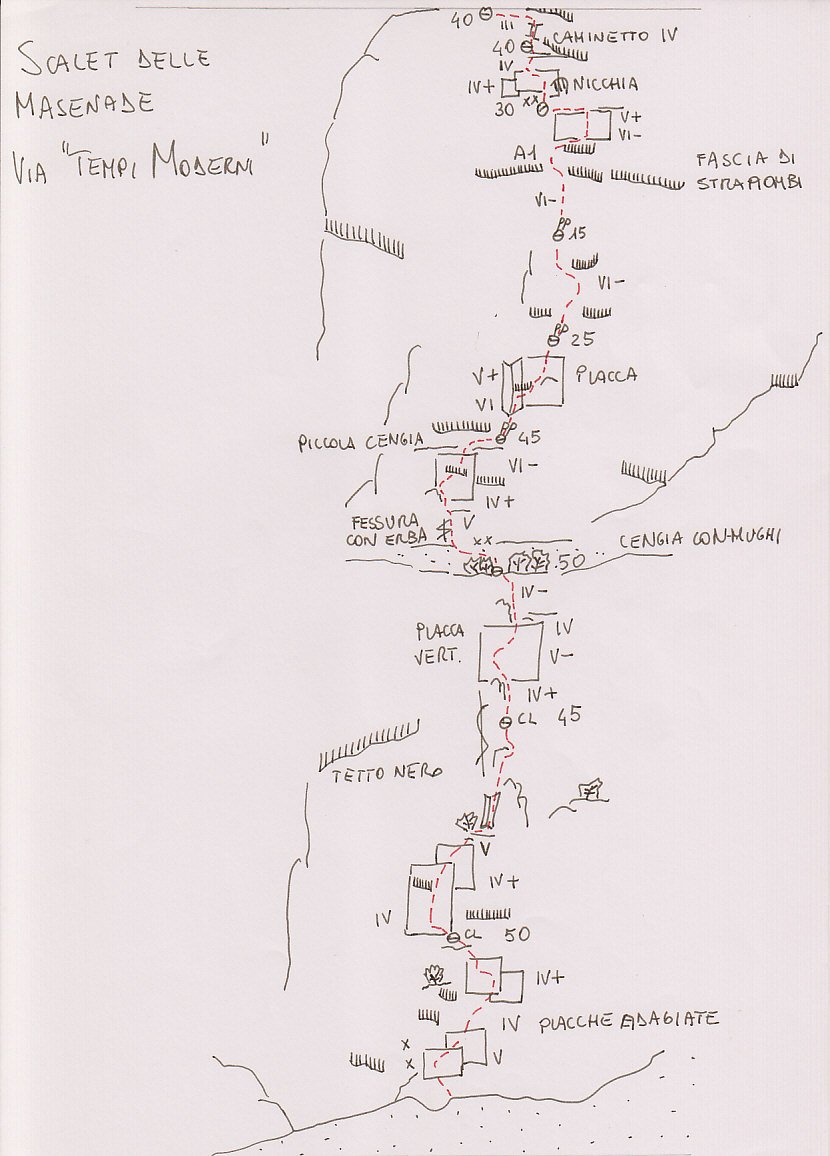 SCALET DELLE
MASENADE
VIA "TEMPI MODERNI"
40 III
CAMINETTO IV
40
IV
IV+ NICCHIA
30 XX
V+
VI-
A1
FASCIA DI
STRAPIOMBI
VI-
15
VI-
25
V+ PLACCA
VI
PICCOLA CENGIA 45
VI-
IV+
FESSURA V
CON ERBA
XX CENGIA CON MUGHI
50
IV-
PLACCA IV
VERT. V-
IV+
CL 45
TETTO NERO
V
IV+
IV
CL 50
IV+
IV PLACCHE ADAGIATE
X
X V